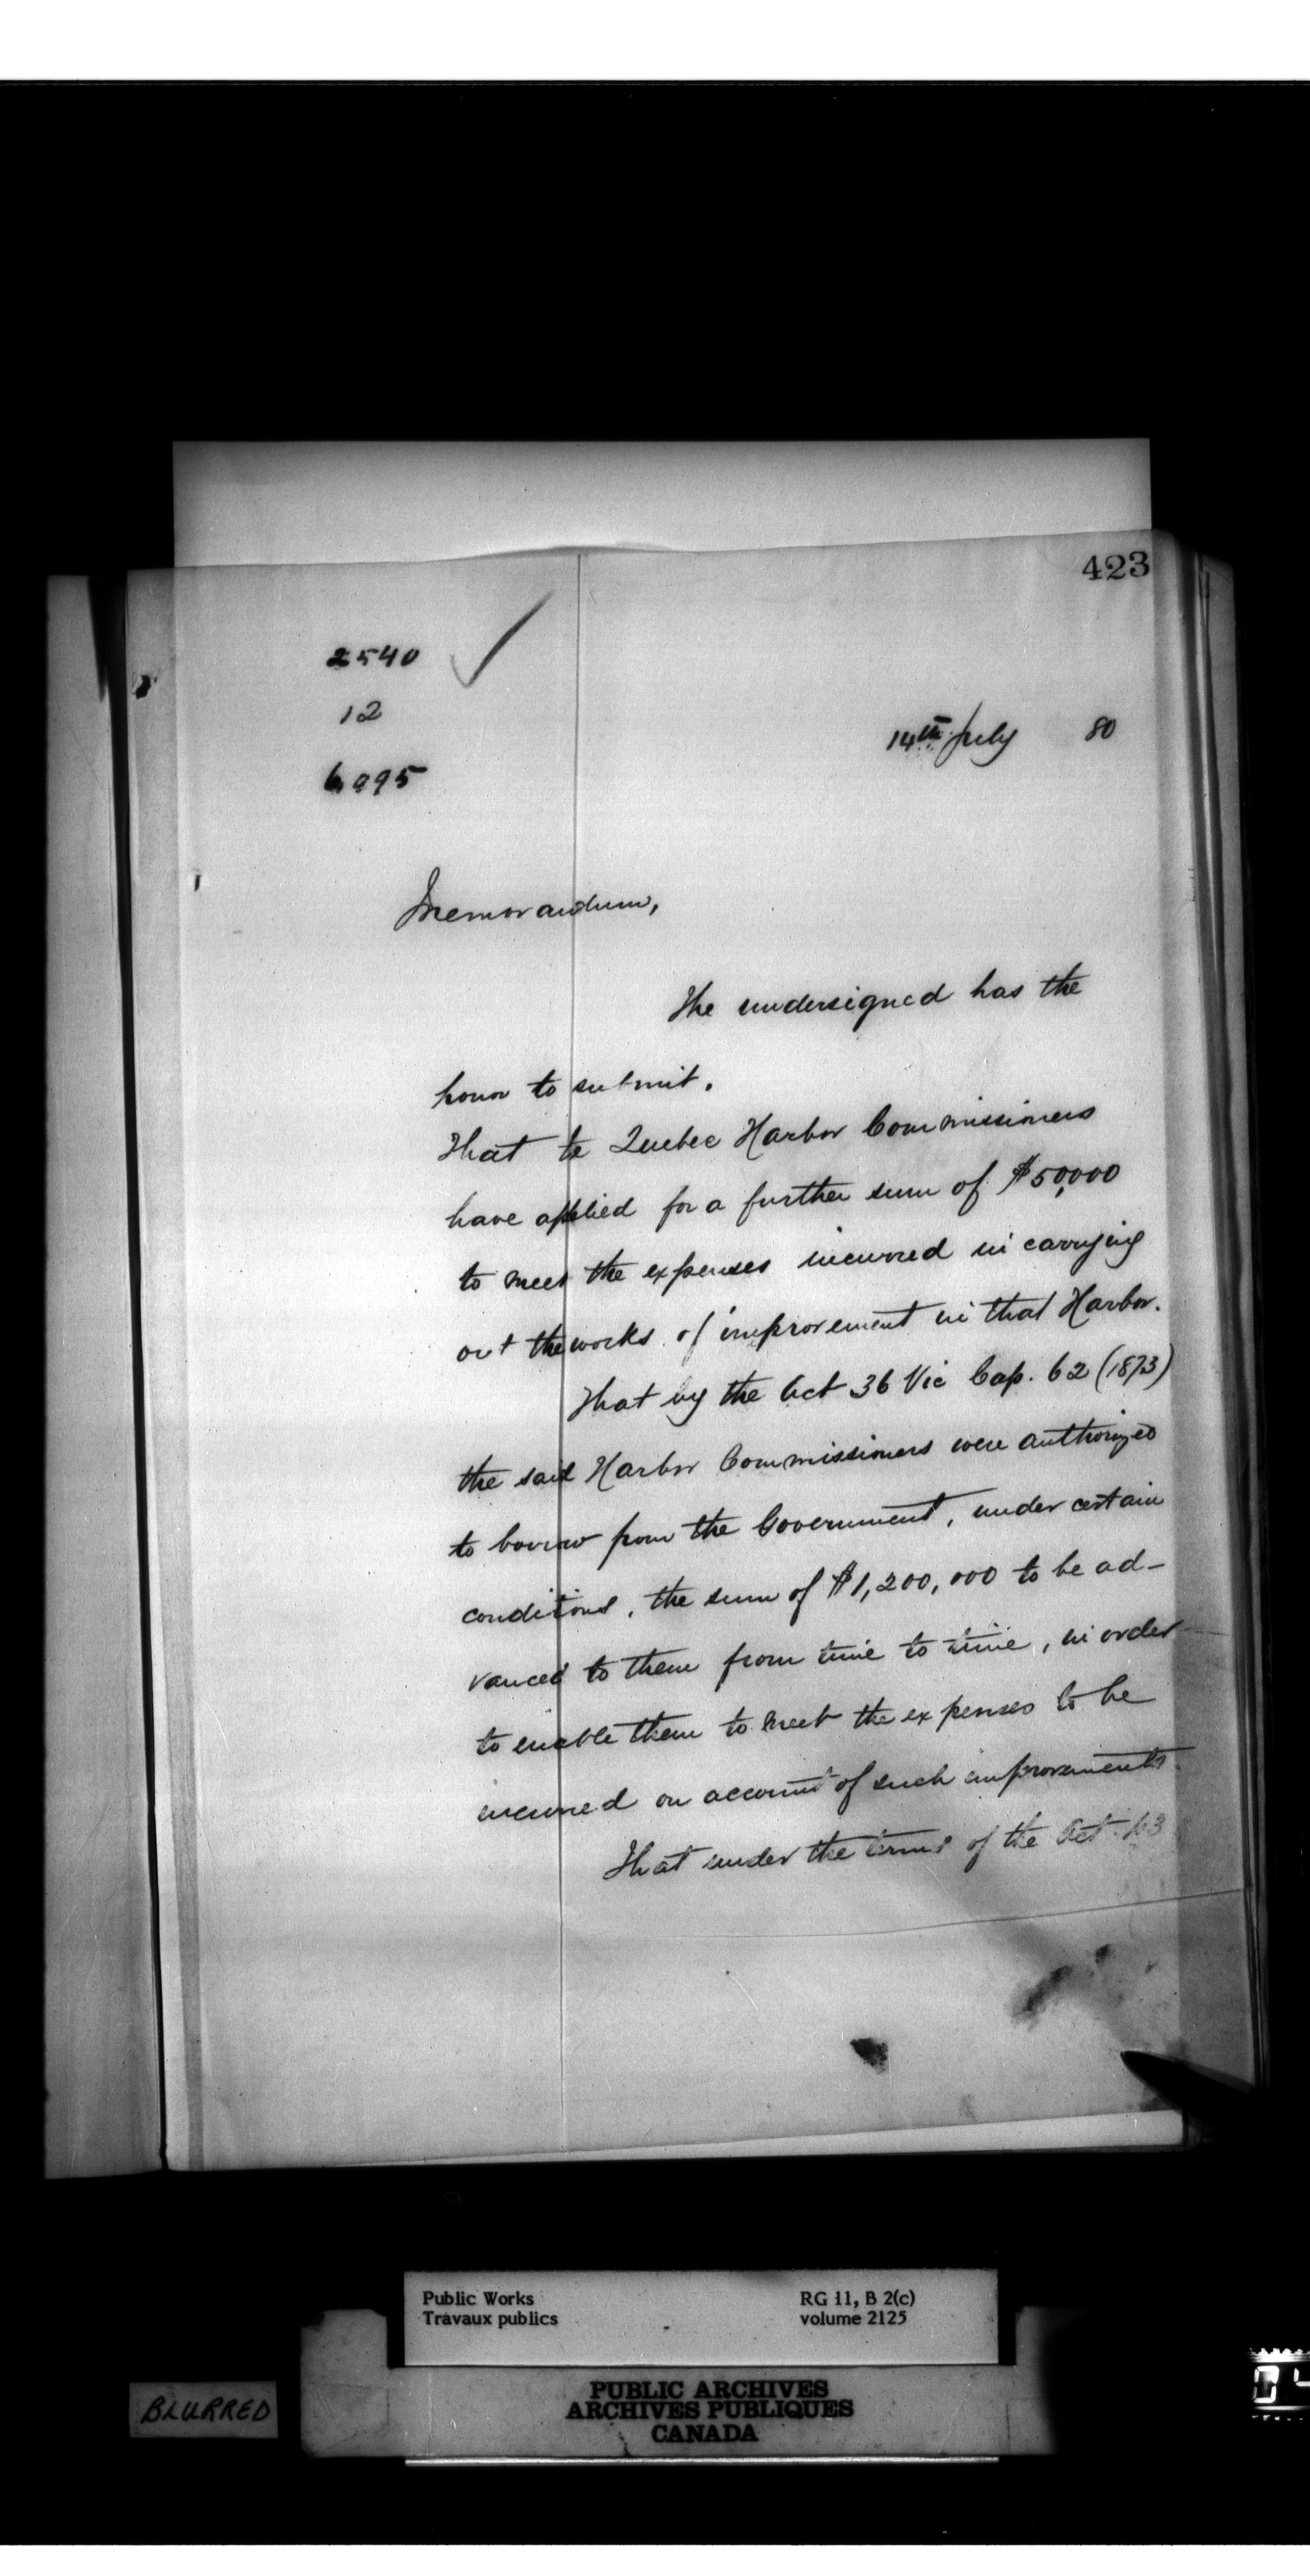 423
2540
12
14th July 80
6995
Memorandum,
The undersigned has the
honor to submit.
That te Quebec Harbor Commissioners
have applied for a further sum of $50,000
to meet the expenses incurred in carrying
out the works of improvement in that Harbor.
That by the Act 36 Vic Cap. 62 (1873)
the said Harbor Commissioners were authorized
to borrow from the Government, under certain
conditions, the sum of $1,200,000 to be ad-
vanced to them from time to time, in order
to enable them to meet the expenses to be
incurred on account of such improvements.
That under the terms of the Act
Public Works
Travaux publics
RG 11, B 2(c)
volume 2125
PUBLIC ARCHIVES
ARCHIVES PUBLIQUES
CANADA
BLURRED